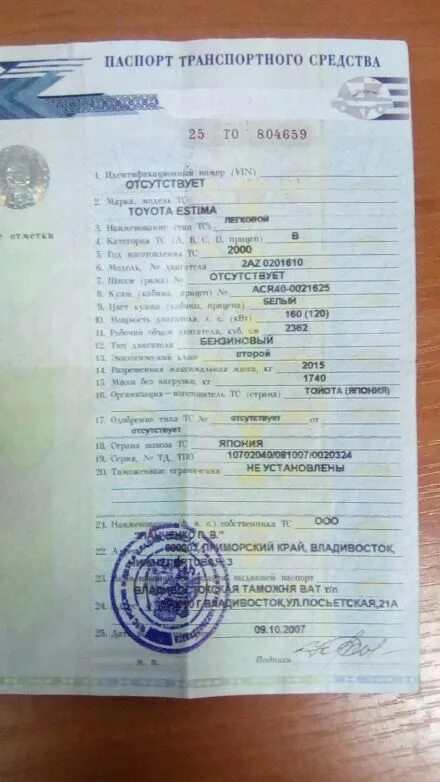 ПАСПОРТ ТРАНСПОРТНОГО СРЕДСТВА
25 ТО 804659
е отметки
1. Идентификационный номер (VIN)
ОТСУТСТВУЕТ
2. Марка, модель ТС
TOYOTA ESTIMA
3. Наименование (тип ТС) ЛЕГКОВОЙ
4. Категория ТС (А, В, С, D, прицеп) В
5. Год изготовления ТС 2000
6. Модель, № двигателя 2AZ 0201610
7. Шасси (рама) № ОТСУТСТВУЕТ
8. Кузов (кабина, прицеп) № ACR40-0021625
9. Цвет кузова (кабины, прицепа) БЕЛЫЙ
10. Мощность двигателя, л. с. (кВт) 160 (120)
11. Рабочий объем двигателя, куб. см 2362
12. Тип двигателя БЕНЗИНОВЫЙ
13. Экологический класс второй
14. Разрешенная максимальная масса, кг 2015
15. Масса без нагрузки, кг 1740
16. Организация-изготовитель ТС (страна) ТОЙОТА (ЯПОНИЯ)
17. Одобрение типа ТС № отсутствует от
отсутствует
18. Страна вывоза ТС ЯПОНИЯ
19. Серия, № ТД, ТПО 10702040/081007/0020324
20. Таможенные ограничения НЕ УСТАНОВЛЕНЫ
21. Наименование (ф. и. о.) собственника ТС ООО
22. ПРИМОРСКИЙ КРАЙ, ВЛАДИВОСТОК,
3
23. выдавшей паспорт
ВЛАДИВОСТОКСКАЯ ТАМОЖНЯ ВАТ т/п
24. Г.ВЛАДИВОСТОК,УЛ.ПОСЬЕТСКАЯ,21А
25. Дата 09.10.2007
М. П. Подпись